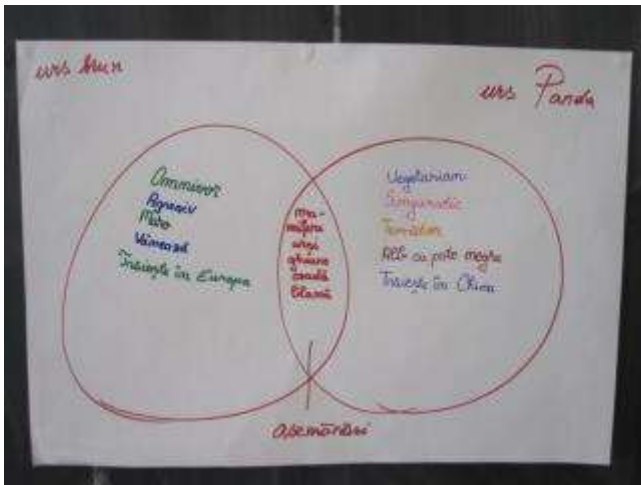 urs brun
urs Panda
Omnivor
Agresiv
Maro
Vânează
Trăiește în Europa
ma-
mifere
urși
gheare
coadă
blană
Vegetarian
Singuratic
Temător
Alb cu pete negre
Trăiește în China
asemănări